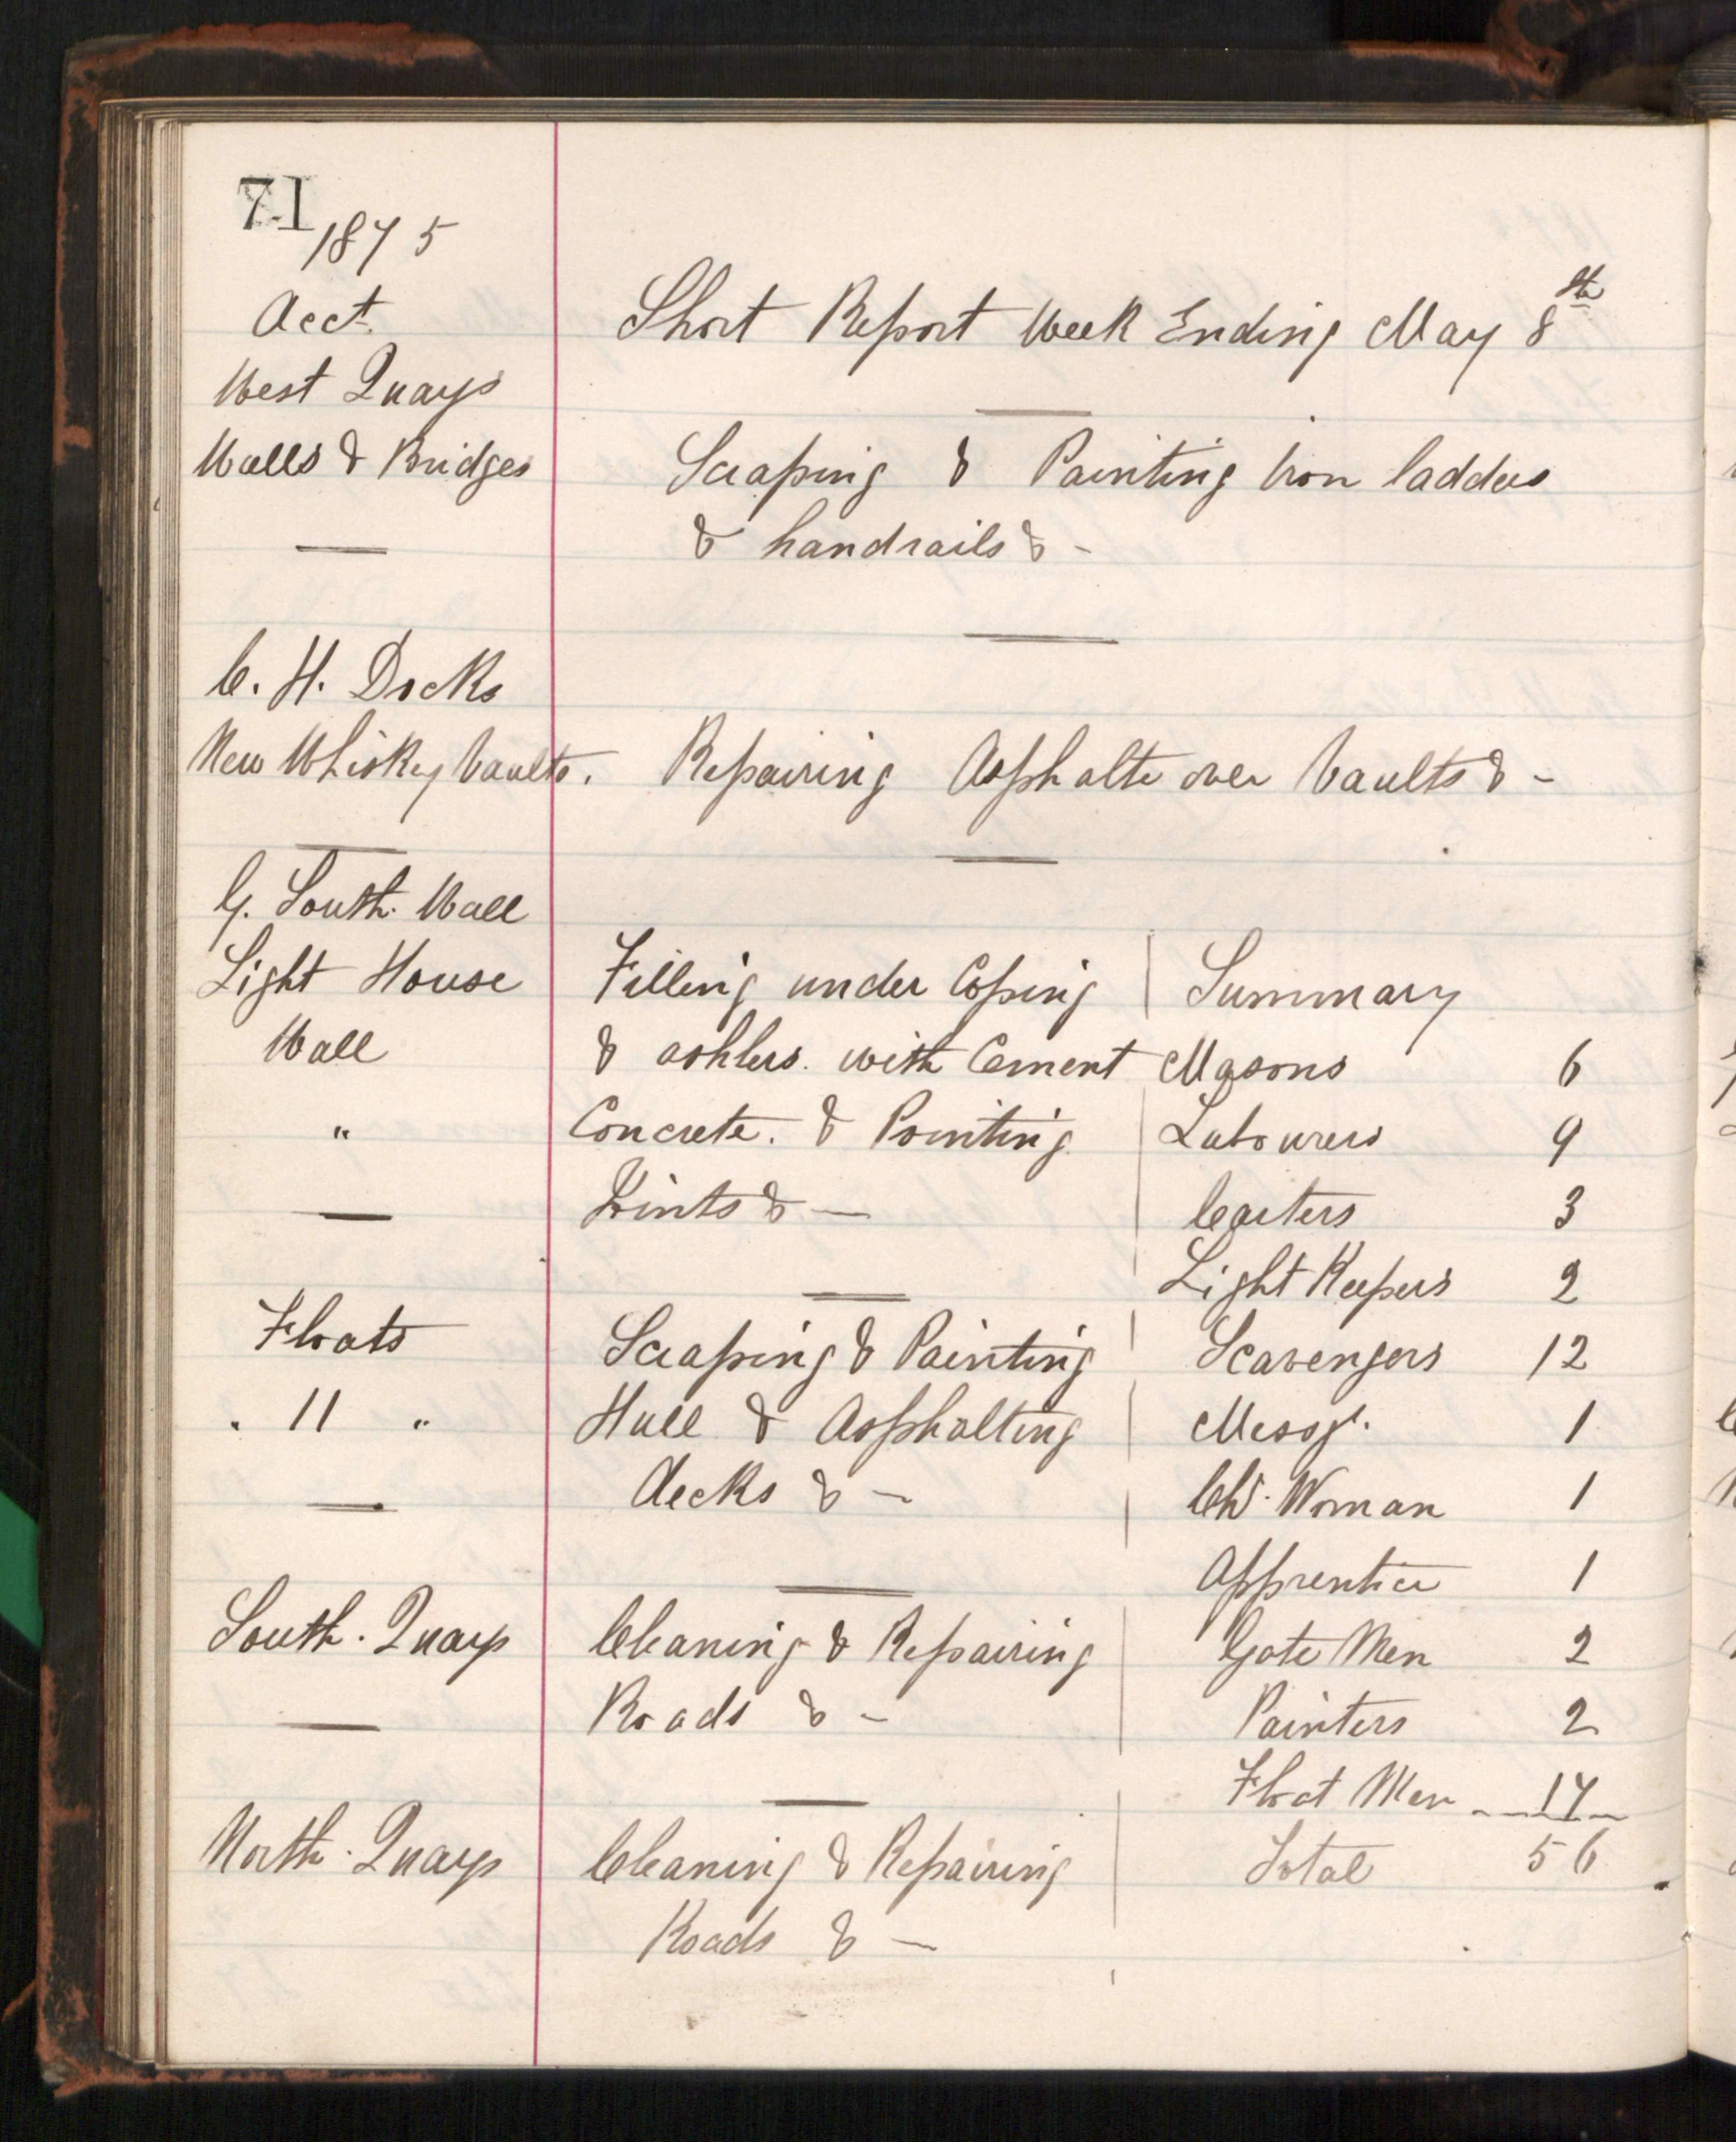 71
1875
Acct.
Short Report Week Ending May 8th
West Quays
Walls & Bridges
Scraping & Painting Iron ladders
& handrails & -
C. H. Docks
New Whiskey Vaults.
Repairing Asphalte over Vaults & -
G. South. Wall
Light House
Wall
"
Filling under Coping
& ashlers. with Cement
Concrete. & Pointing
Joints & -
Floats
" 11 "
Scraping & Painting
Hull & Asphalting
decks & -
South. Quays
Cleaning & Repairing
Roads & -
North. Quays
Cleaning & Repairing
Roads & -
Summary
Masons 6
Labourers 9
Carters 3
Light Keepers 2
Scavengers 12
Messgr. 1
Woman 1
Apprentice 1
Gate Men 2
Painters 2
Float Men 17
Total 56